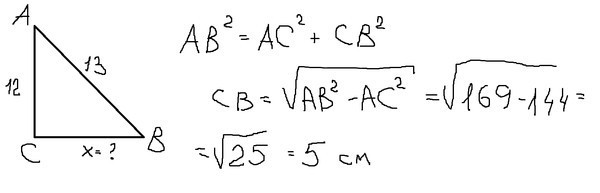 A
12
13
C
x = ?
B
AB² = AC² + CB²
CB = √(AB² - AC²) = √(169 - 144) =
= √25 = 5 см